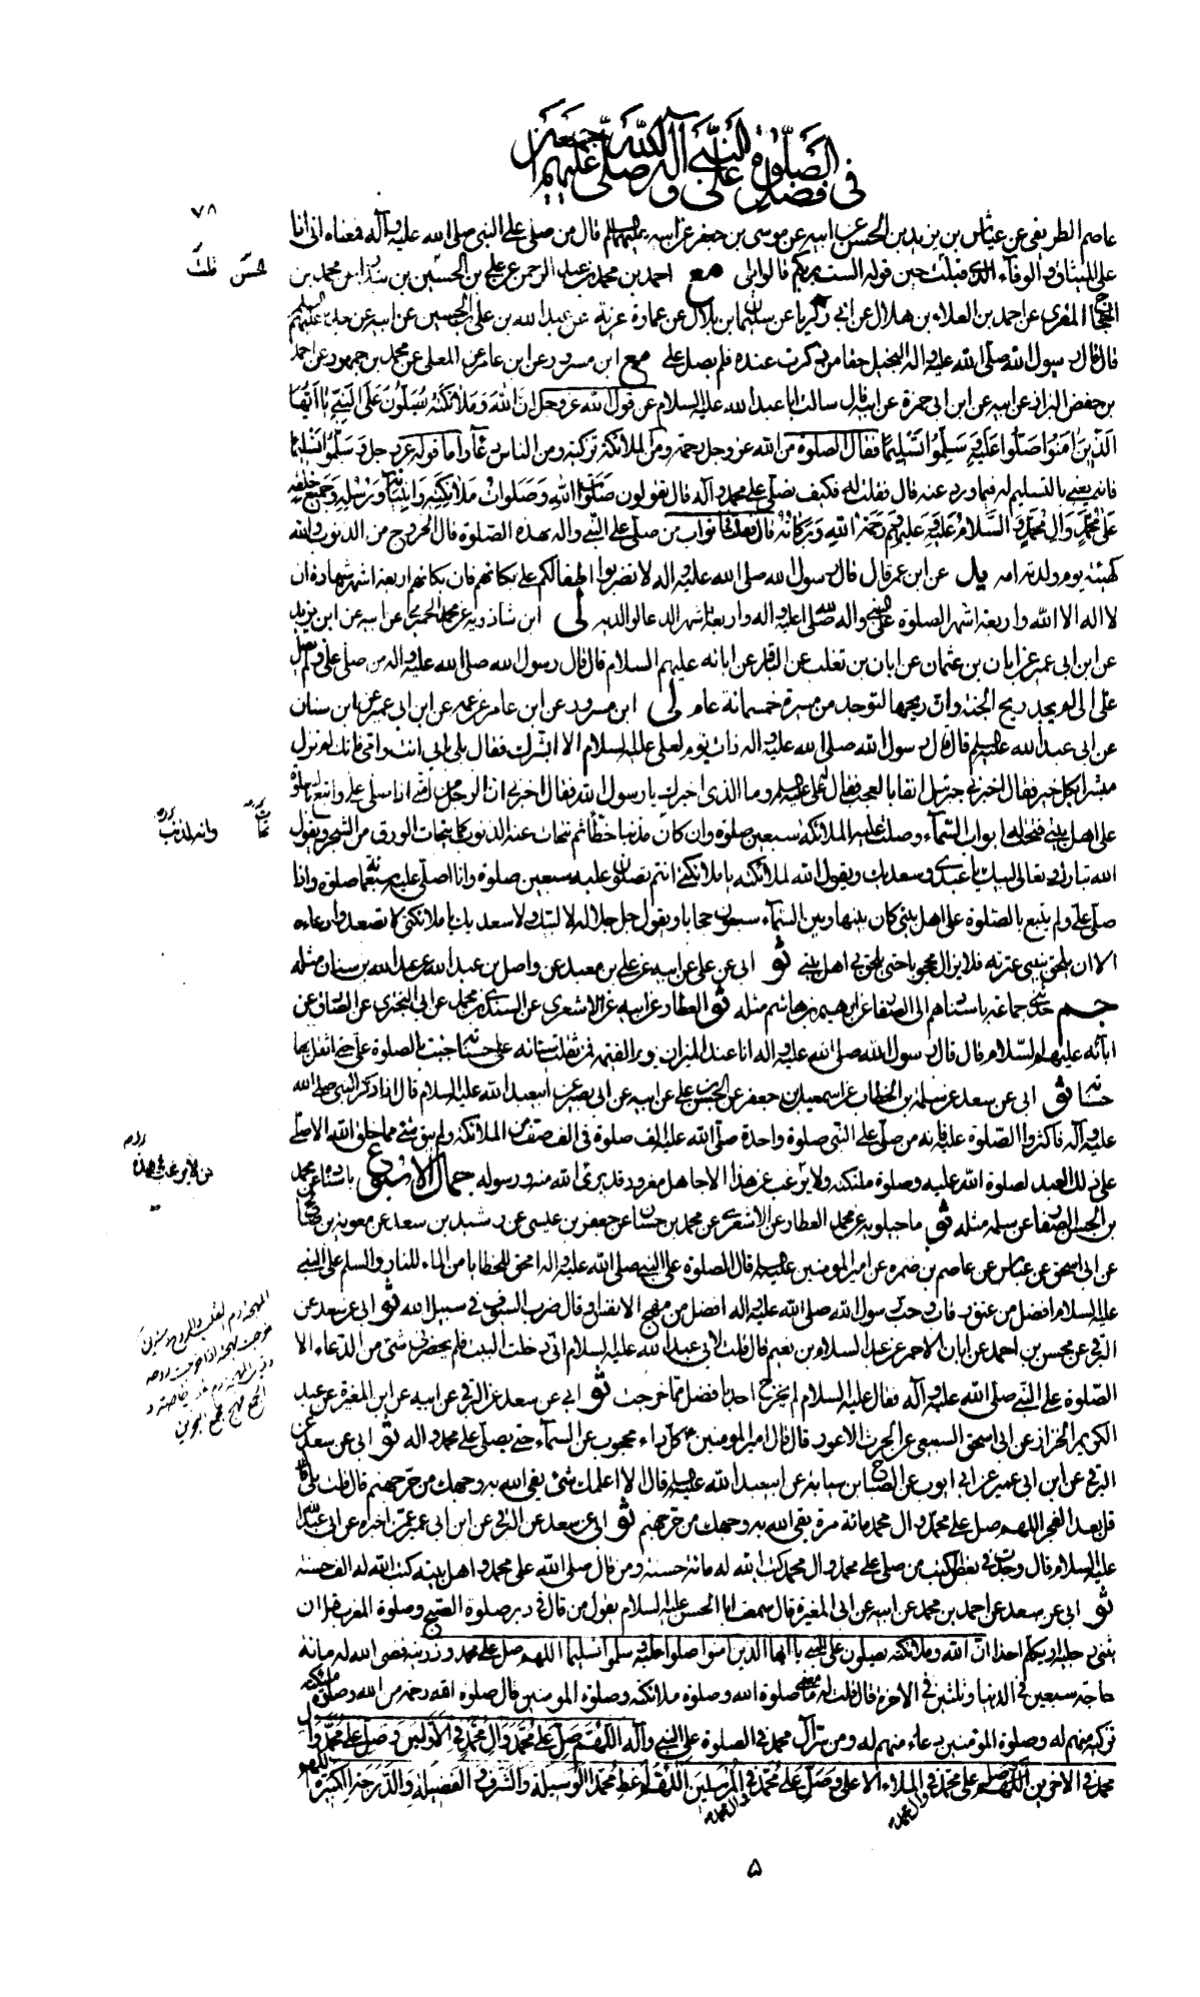 في فضل الصلوة على النبي وآله صلى الله عليهم اجمعين
٧٨
عاصم الطريفى عن عياش بن يزيد بن الحسن عن ابيه عن موسى بن جعفر عن ابيه عليهم السلام قال من صلى على النبي صلى الله عليه وآله فمعناه انى انا
على الميثاق والوفاء الذى قبلت حين قوله الست بربكم قالوا بلى مع احمد بن محمد بن عبد الرحمن عن على بن الحسين بن بندار عن محمد بن
الحجاج المقرى عن احمد بن العلاء بن هلال عن ابى زكريا عن سليمان بن بلال عن عمارة بن غزية عن عبد الله بن على بن الحسين عن ابيه عن جده عليهم السلام
قال قال رسول الله صلى الله عليه واله البخيل حقا من ذكرت عنده فلم يصل على مع ابن مسرور عن ابن عامر عن المعلى عن محمد بن جمهور عن احمد
بن حفص البزاز عن ابيه عن ابن ابى حمزة عن ابيه قال سالت ابا عبد الله عليه السلام عن قول الله عز وجل ان الله وملائكته يصلون على النبي يا ايها
الذين امنوا صلوا عليه وسلموا تسليما فقال الصلوة من الله عز وجل رحمة ومن الملائكة تزكية ومن الناس دعاء واما قوله عز وجل وسلموا تسليما
فانه يعنى بالتسليم له فيما ورد عنه قال فقلت له فكيف نصلى على محمد وآله قال تقولون صلوات الله وصلوات ملائكته وانبيائه ورسله وجميع خلقه
على محمد وال محمد والسلام عليه وعليهم ورحمة الله وبركاته قال فقلت فما ثواب من صلى على النبي واله بهذه الصلوة قال الخروج من الذنوب والله
كهيئة يوم ولدته امه يل عن ابن عمر قال قال رسول الله صلى الله عليه واله لا تضربوا اطفالكم على بكائهم فان بكائهم اربعة اشهر شهادة ان
لا اله الا الله واربعة اشهر الصلوة على النبي واله صلى الله عليه واله واربعة اشهر الدعا لوالديه لى ابن شاذويه عن محمد الحميرى عن ابيه عن ابن يزيد
عن ابن ابى عمير عن ابان بن عثمان عن ابان بن تغلب عن الباقر عن ابائه عليهم السلام قال قال رسول الله صلى الله عليه واله من صلى على ولم يصل
على الى لم يجد ريح الجنة وان ريحها لتوجد من مسيرة خمسمائة عام لى ابن مسرور عن ابن عامر عن عمه عن ابن ابى عمير عن ابن سنان
عن ابى عبد الله عليه السلم قال قال رسول الله صلى الله عليه واله ذات يوم لعلى عليه السلام الا ابشرك فقال بلى بابى انت وامى فانك لم تزل
مبشرا بكل خير فقال اخبرنى جبرئيل انفا بالعجب فقال له على عليه السلم وما الذى اخبرك يا رسول الله فقال اخبرنى ان الرجل من امتى اذا صلى على واتبع بالصلوة
على اهل بيتى فتحت له ابواب السماء وصلت عليه الملائكة سبعين صلوة وان كان مذنبا خطأ ثم تتحات عنه الذنوب كما يتحات الورق من الشجر ويقول
الله تبارك وتعالى لبيك يا عبدى وسعديك ويقول الله لملائكته يا ملائكتى انتم تصلون عليه سبعين صلوة وانا اصلى عليه سبعمائة صلوة واذا
صلى على ولم يتبع بالصلوة على اهل بيتى كان بينها وبين السماء سبعون حجابا ويقول جل جلاله لا لبيك ولا سعديك يا ملائكتى لا تصعدوا دعاءه
الا ان يلحق بنبيى عترته فلا يزال محجوبا حتى يلحق بى اهل بيتى ثو ابى عن على عن ابيه عن على بن معبد عن واصل بن عبد الله عن عبد الله بن سنان مثله
جم حدثنى جماعة باسنادهم الى الصفار عن ابرهيم بن هاشم مثله ثو العطار عن ابيه عن الاشعرى عن السندى بن محمد عن ابى البخترى عن الصادق عن
ابائه عليهم السلام قال قال رسول الله صلى الله عليه واله انا عند الميزان يوم القيمة فمن ثقلت سيئاته على حسناته جئت بالصلوة على حتى اثقل بها
حسناته ثو ابى عن سعد عن سلمة بن الخطاب عن اسمعيل بن جعفر عن الحسن بن على عن ابيه عن ابى بصير عن ابيعبد الله عليه السلام قال اذا ذكر النبي صلى الله
عليه وآله فاكثروا الصلوة عليه فانه من صلى على النبي صلوة واحدة صلى الله عليه الف صلوة فى الف صف من الملائكة ولم يبق شئ مما خلق الله الا صلى
على ذلك العبد لصلوة الله عليه وصلوة ملئكته ولا يرغب عن هذا الا جاهل مغرور قد برئ الله منه ورسوله جمال الاسبوع باسناده عن محمد
بن الحسن الصفار عن سلمة مثله ثو ماجيلويه عن محمد العطار عن الاشعرى عن محمد بن حسان عن جعفر بن عيسى عن رشيد بن سعد عن معوية بن صالح
عن ابى اسحق عن عياش عن عاصم بن ضمره عن امير المؤمنين عليه السلم قال الصلوة على النبي صلى الله عليه واله امحق للخطايا من الماء للنار والسلم على النبي
عليه السلام افضل من عتق رقاب وحب رسول الله صلى الله عليه واله افضل من مهج الانفس او قال ضرب السيوف في سبيل الله ثو ابى عن سعد عن
البرقى عن محسن بن احمد عن ابان الاحمر عن عبد السلام بن نعيم قال قلت لابى عبد الله عليه السلام انى دخلت البيت فلم يحضرنى شئ من الدعاء الا
الصلوة على النبي صلى الله عليه وآله فقال عليه السلام لم يخرج احد بافضل مما خرجت ثو ابى عن سعد عن البرقى عن ابيه عن ابن المغيرة عن عبد
الكريم الخزاز عن ابى اسحق السبيعى عن الحرث الاعور قال قال امير المؤمنين ع كل دعاء محجوب عن السماء حتى يصلى على محمد واله ثو ابى عن سعد عن
البرقى عن ابن ابى عمير عن ابى ايوب عن الصباح بن سيابة عن ابيعبد الله عليه السلم قال الا اعلمك شئ يقى الله به وجهك من حر جهنم قال قلت بلى قال
قل بعد الفجر اللهم صل على محمد وال محمد مائة مرة يقى الله به وجهك من حر جهنم ثو ابى عن سعد عن البرقى عن ابن ابى عمير عمن اخبره عن ابى عبد الله
عليه السلام قال وجدت في بعض الكتب من صلى على محمد وال محمد كتب الله له مائة حسنة ومن قال صلى الله على محمد واهل بيته كتب الله له الف حسنة
ثو ابى عن سعد عن احمد بن محمد عن ابيه عن ابى المغيرة قال سمعت ابا الحسن عليه السلام يقول من قال في دبر صلوة الصبح وصلوة المغرب قبل ان
يثنى رجليه او يكلم احدا ان الله وملائكته يصلون على النبي يا ايها الذين امنوا صلوا عليه وسلموا تسليما اللهم صل على محمد وذريته قضى الله له مائة
حاجة سبعين في الدنيا وثلثين في الاخرة قال قلت له ما معنى صلوة الله وصلوة ملائكته وصلوة المؤمنين قال صلوة الله رحمة من الله وصلوة ملائكته
تزكية منهم له وصلوة المؤمنين دعاء منهم له ومن سر آل محمد في الصلوة على النبي وآله اللهم صل على محمد وال محمد في الاولين وصل على محمد وال
محمد في الاخرين اللهم وصل على محمد في الملاء الاعلى وصل على محمد في المرسلين اللهم اعط محمدا الوسيلة والشرف والفضيلة والدرجة الكبيرة اللهم
وال محمد
وال محمد
٥